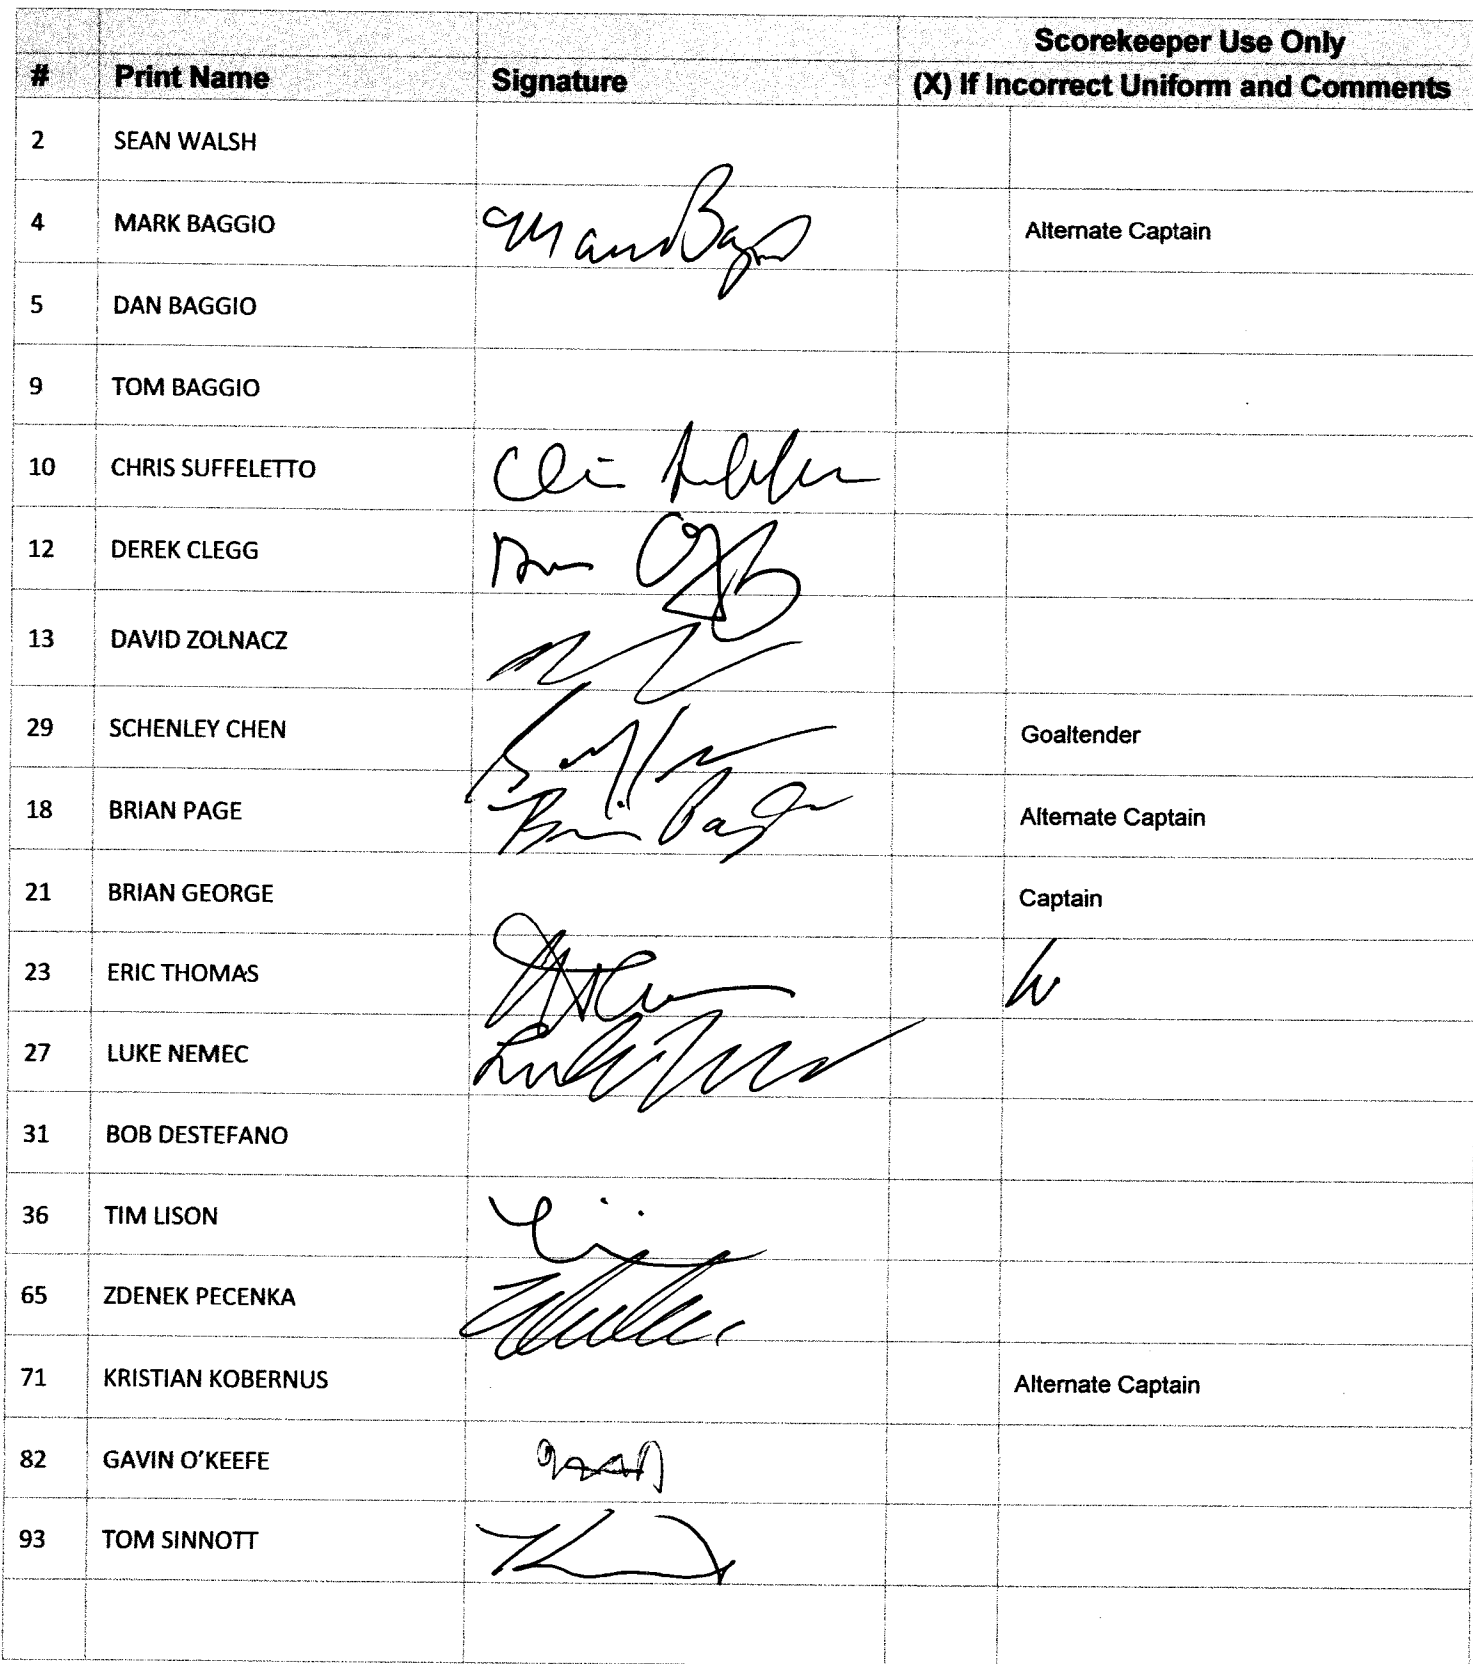 Scorekeeper Use Only
# Print Name Signature (X) If Incorrect Uniform and Comments
2 SEAN WALSH
4 MARK BAGGIO Alternate Captain
5 DAN BAGGIO
9 TOM BAGGIO
10 CHRIS SUFFELETTO
12 DEREK CLEGG
13 DAVID ZOLNACZ
29 SCHENLEY CHEN Goaltender
18 BRIAN PAGE Alternate Captain
21 BRIAN GEORGE Captain
23 ERIC THOMAS
27 LUKE NEMEC
31 BOB DESTEFANO
36 TIM LISON
65 ZDENEK PECENKA
71 KRISTIAN KOBERNUS Alternate Captain
82 GAVIN O'KEEFE
93 TOM SINNOTT